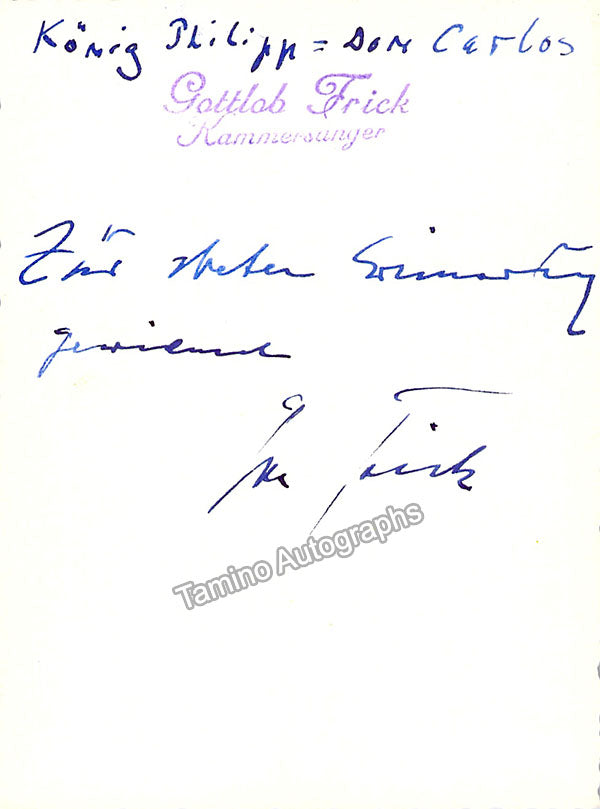 König Philipp = Dom Carlos
Gottlob Frick
Kammersänger
Zur steten Erinnerung
gewidmet
Ihr Frick
Tamino Autographs